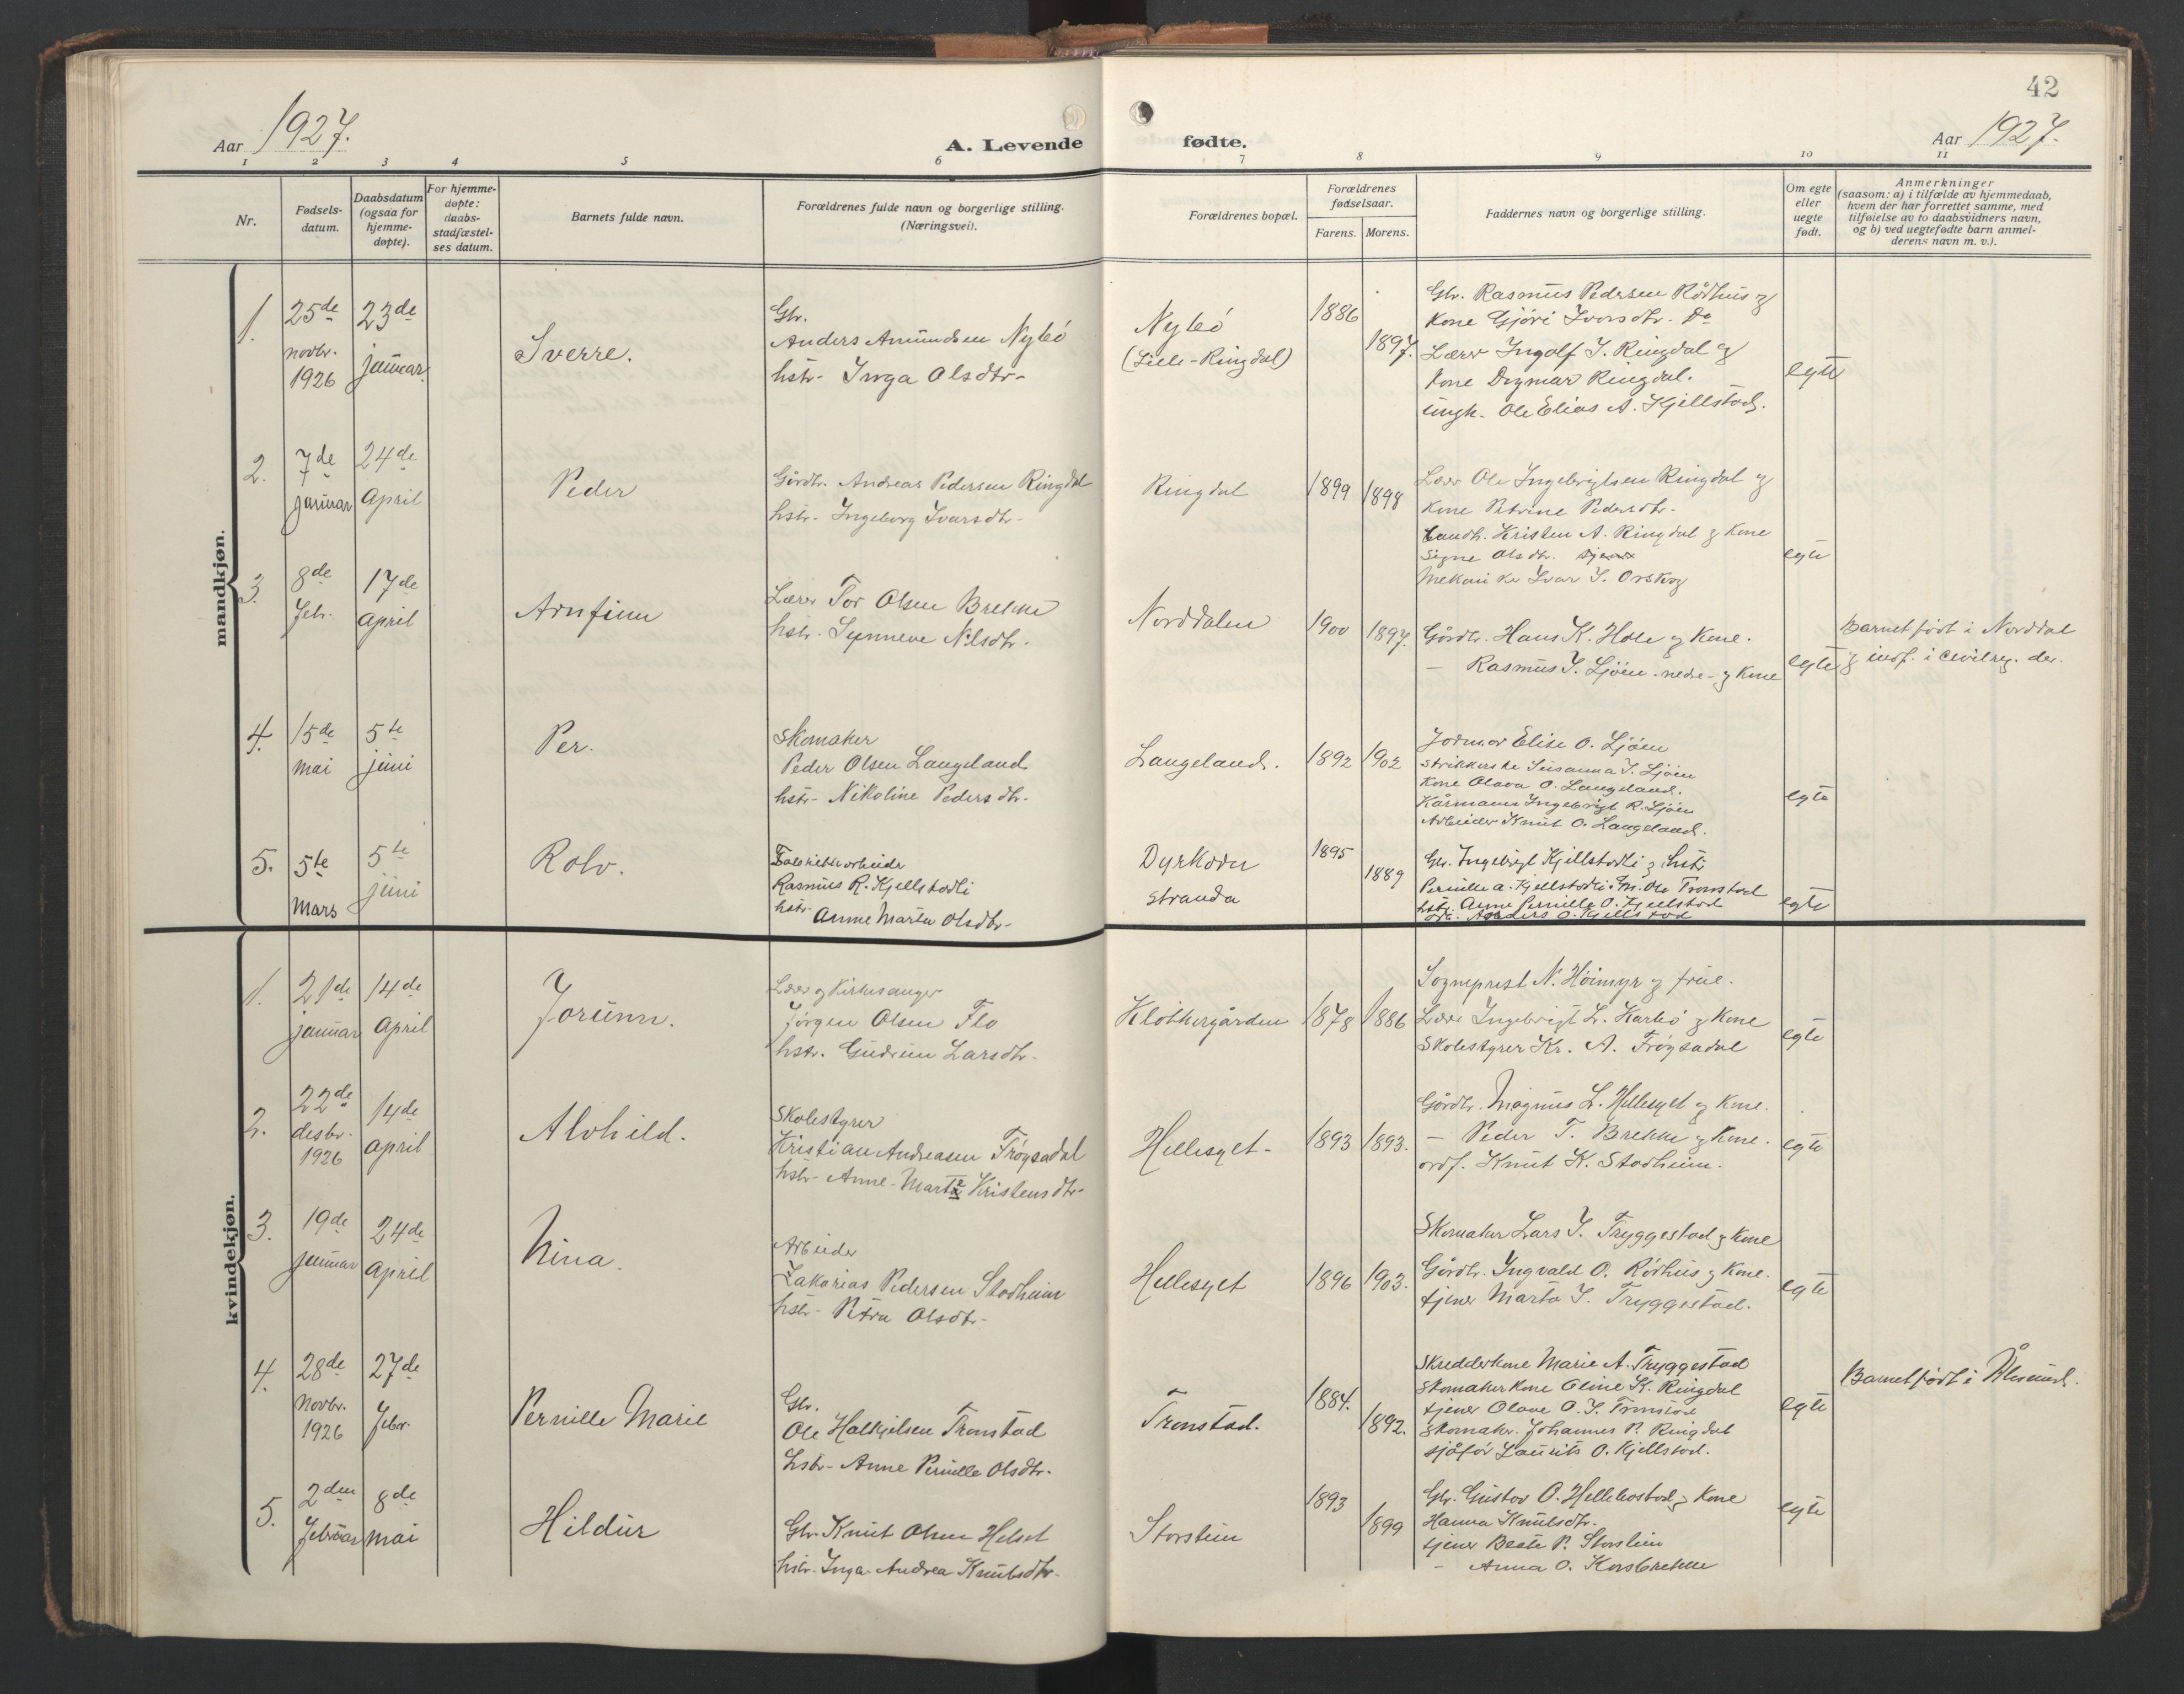 42
Aar 1927.
A. Levende
fødte.
Aar 1927.
1 2 3 4 5 6 7 8 9 10 11
Nr.
Fødsels-
datum.
Daabsdatum
(ogsaa for
hjemme-
døpte).
For hjemme-
døpte:
daabs-
stadfæstel-
ses datum.
Barnets fulde navn.
Forældrenes fulde navn og borgerlige stilling.
(Næringsvei).
Forældrenes bopæl.
Forældrenes
fødselsaar.
Farens. Morens.
Faddernes navn og borgerlige stilling.
Om egte
eller
uegte
født.
Anmerkninger
(saasom: a) i tilfælde av hjemmedaab,
hvem der har forrettet samme, med
tilføielse av to daabsvidners navn,
og b) ved uegtefødte barn anmel-
derens navn m. v.).
mandkjøn.
1.
25de
novbr.
1926
23de
januar
Sverre.
Gbr.
Anders Amundsen Nybö
hstr- Inga Olsdtr-
Nybö
(Lille-Ringdal)
1886
1897.
Gbr. Rasmus Pedersen Rödhus og
Kone Gjöri Ivarsdtr. Do
Lærer Ingolf I. Ringdal og
Kone Dagmar Ringdal.
ungk. Ole Elias A. Kjellstad.
egte
2.
7de
januar
24de
April
Peder
Gårdbr. Andreas Pedersen Ringdal
hstr- Ingeborg Ivarsdtr-
Ringdal
1899
1898
Lærer Ole Ingebrigtsen Ringdal og
Kone Petrine Pedersdtr-
Landh. Kristen A. Ringdal og Kone
Signe Olsdtr.
Mekaniker Ivar I. Orskog
egte
3.
8de
Febr.
17de
April
Arnfinn
Lærer Tor Olsen Brekke
hstr. Synneve Nilsdtr.
Norddalen
1900
1897.
Gårdbr. Hans K. Hole og Kone.
— Rasmus I. Ljöen. nedre- og Kone
egte
Barnet födt i Norddal
og indf. i civilreg. der.
4.
15de
Mai
5te
juni
Per.
Skomaker
Peder Olsen Langeland
hstr- Nikoline Pedersdtr.
Langeland.
1892
1902
Jordmor Elise O. Ljöen
Strikkerske Susanna I. Ljöen
Kone Olava O. Langeland.
Kårmann Ingebrigt R. Ljöen
Arbeider Knut O. Langeland.
egte
5.
5te
Mars
5te
juni
Rolv.
Fabrikkarbeider
Rasmus R. Kjellstadli
hstr- Anne Marta Olsdtr-
Dyrkorn
Stranda
1895
1889
Gbr. Ingebrigt Kjellstadli og hstr
Pernille A. Kjellstadli. Gm. Ole Tronstad
hstr. Anne Pernille O. Kjellstad
Anders O. Kjellstad
egte
kvindekjøn.
1.
21de
januar
14de
April
Jorunn.
Lærer og Kirkesanger
Jörgen Olsen Flo
hstr. Gudrun Larsdtr.
Klokkergården
1878
1886
Sogneprest N. Höimyr og frue.
Lærer Ingebrigt L. Karbö og Kone
Skolestyrer Kr. A. Fröysadal
egte
2.
22de
desbr.
1926
14de
April
Alvhild.
Skolestyrer
Kristian Andreasen Fröysadal
hstr- Anne-Marte Kristensdtr-
Hellesylt-
1893
1893.
Gårdbr. Magnus L. Hellesylt og Kone.
— Peder T. Brekke og Kone.
ordf. Knut K. Stadheim.
egte
3.
19de
januar
24de
April
Nina.
Arbeider
Zakarias Pedersen Stadheim
hstr- Petra Olsdtr-
Hellesylt
1896
1903.
Skomaker Lars I. Tryggestad og Kone
Gårdbr. Ingvald O. Rödhus og Kone.
tjener Marta I. Tryggestad.
egte
4.
28de
Novbr.
1926
27de
Febr.
Pernille Marie
Gbr.
Ole Halkjelsen Tronstad
hstr- Anne Pernille Olsdtr.
Tronstad.
1884.
1892.
Skredderkone Marie A. Tryggestad
Skomakerkone Oline K. Ringdal
tjener Olave O. I. Tronstad
Skomaker. Johannes P. Ringdal
sjåför Laurits O. Kjellstad.
egte
Barnet födt i Ålesund.
5.
2den
Februar
8de
Mai
Hildur
Gbr. Knut Olsen Helset
hstr- Inga Andrea Knutsdtr-
Storstein
1893
1899
Gbr. Gustav O. Hellebostad og Kone
Hanna Knutsdtr.
tjener Beate P. Storstein
— Anna O. Korsbrekke
egte